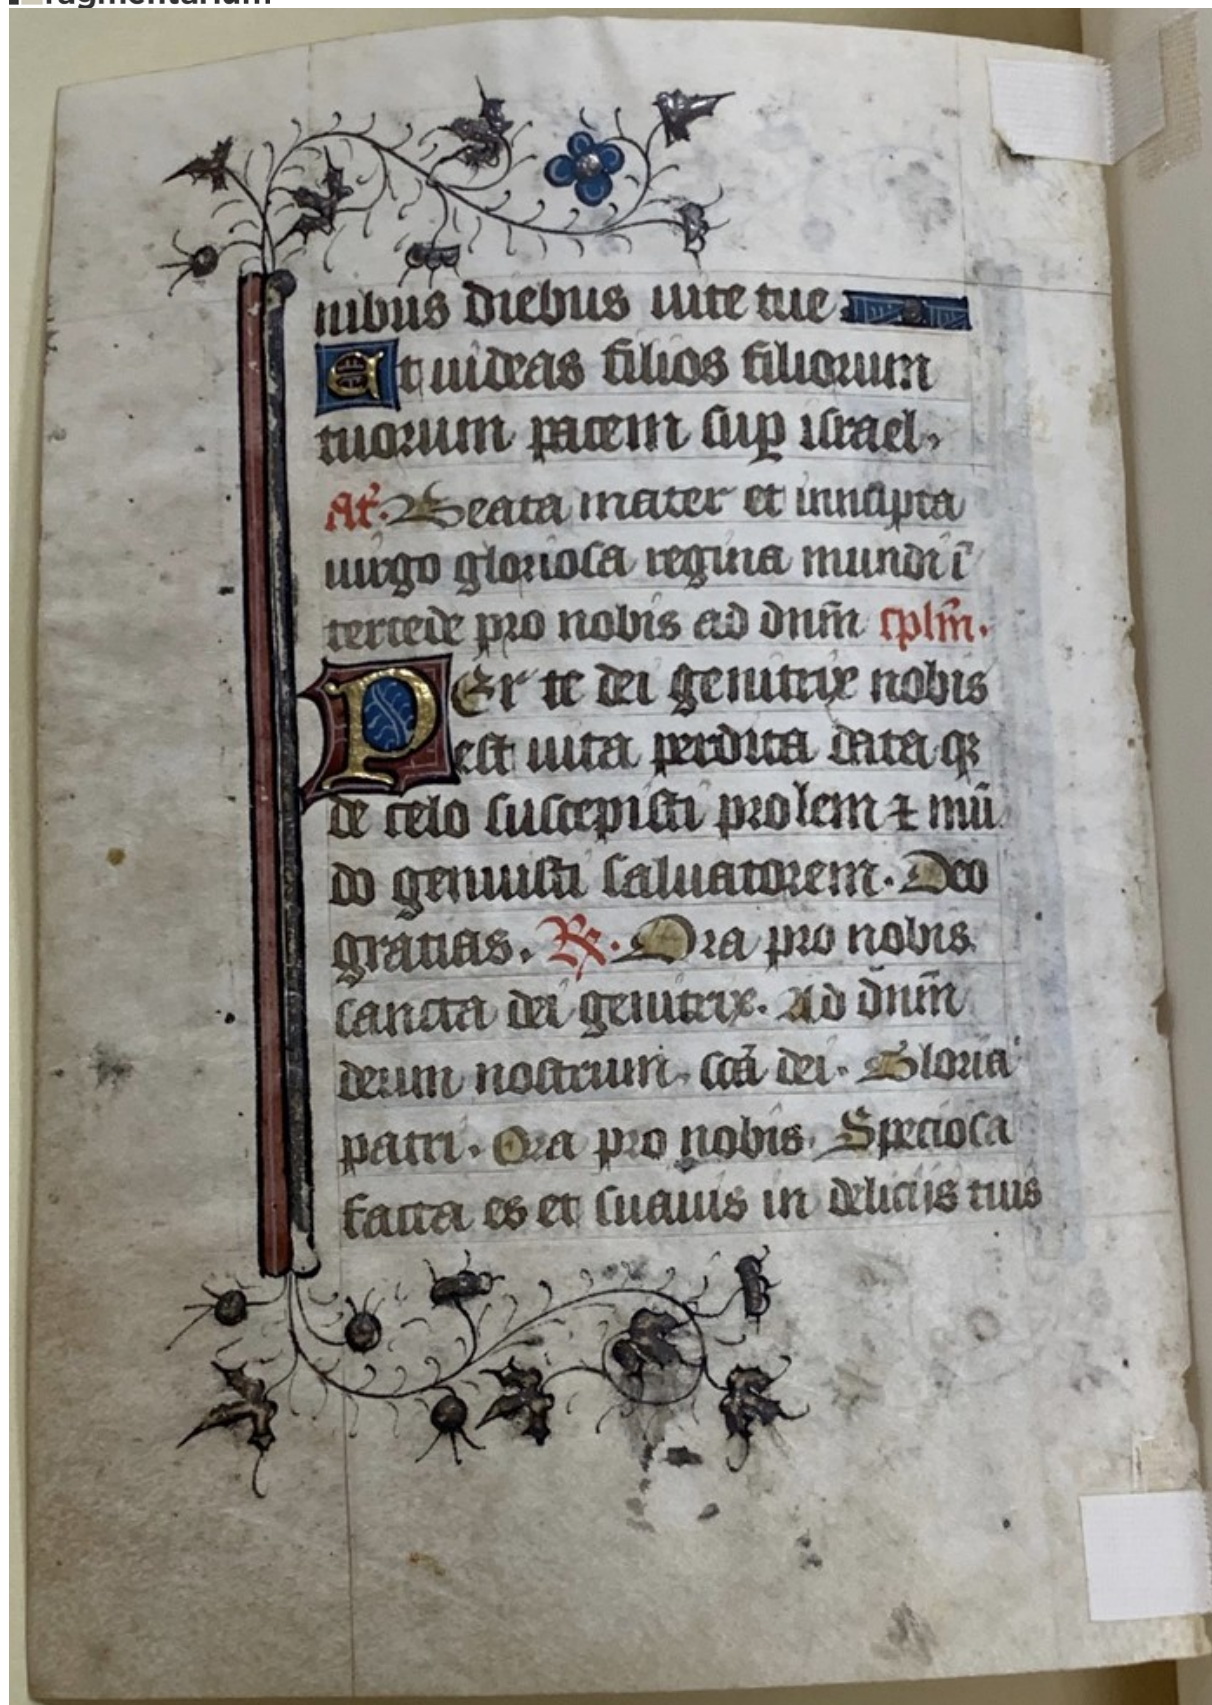 fragmentarium
nibus diebus uite tue
Et uideas filios filiorum
tuorum pacem sup israel.
At. Beata mater et innupta
uirgo gloriosa regina mundi ī
tercede pro nobis ad dnm̄ cplm̄.
PEr te dei genitrix nobis
est uita perdita data qꝫ
de celo suscepisti prolem ⁊ mū
do genuisti saluatorem. Deo
gratias. Rx. Ora pro nobis
sancta dei genitrix. Ad dn̄m
deum nostrum. scā dei. Gloria
patri. Ora pro nobis. Speciosa
facta es et suauis in deliciis tuis